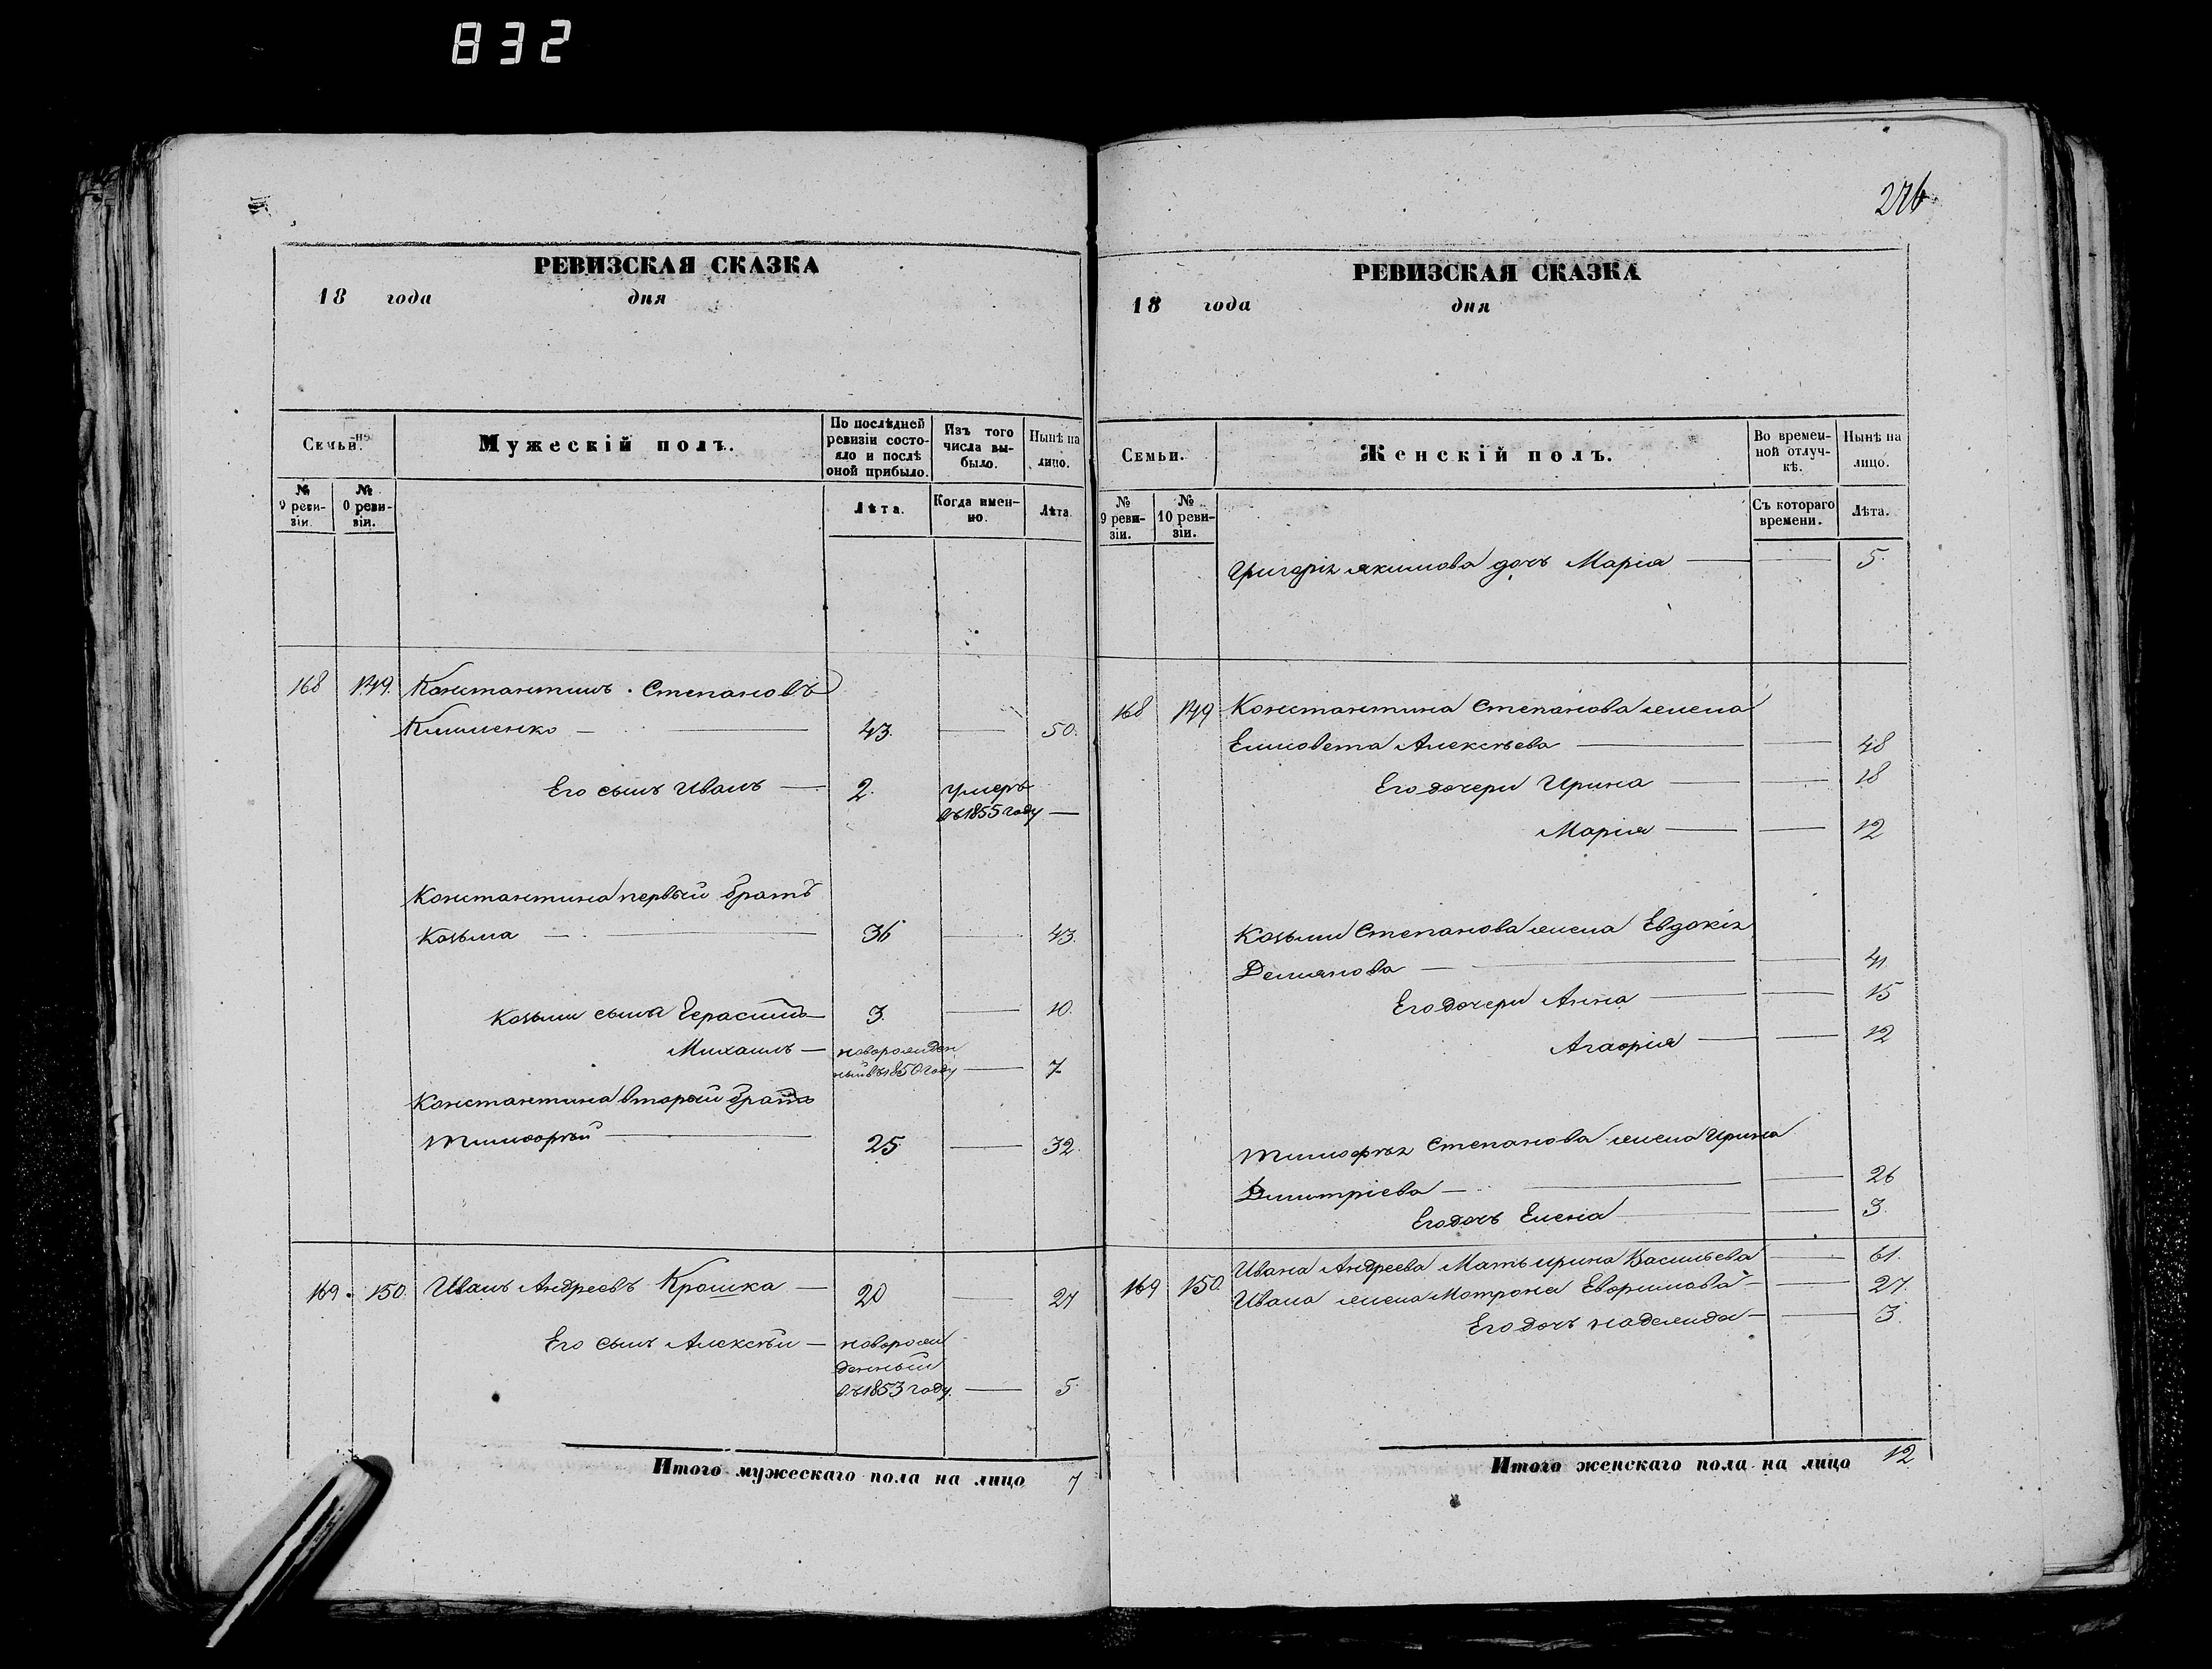 832
276
РЕВИЗСКАЯ СКАЗКА
18 года дня
Семьи.
Мужескій полъ.
По послѣдней ревизіи состояло и послѣ оной прибыло.
Изъ того числа выбыло.
Нынѣ на лицо.
№ 9 ревизіи.
№ 0 ревизіи.
Лѣта.
Когда именно.
Лѣта
168 149. Константинъ Степановъ
Клименко — 43. — 50.
Его сынъ Иванъ — 2. умеръ
въ 1855 году —
Константина первый братъ
Козьма — 36 — 43.
Козьми сыны Герасимъ 3. — 10.
Михаилъ — новорожден
ный въ 1850 году — 7
Константина вторый братъ
Тимофѣй — 25 — 32.
169. 150. Иванъ Андреевъ Крошка — 20 — 27
Его сынъ Алексѣй — новорож
денный
въ 1853 году. — 5.
Итого мужескаго пола на лицо 7
РЕВИЗСКАЯ СКАЗКА
18 года дня
Семьи.
Женскій полъ.
Во временной отлучкѣ.
Нынѣ на лицо.
№ 9 ревизіи.
№ 10 ревизіи.
Съ котораго времени.
Лѣта.
Григорія Якимова дочь Марія — — 5.
168 149 Константина Степанова жена
Елисовета Алексѣева — — 48
Его дочери Ирина — — 18
Марія — — 12
Козьми Степанова жена Евдокія
Демянова — — 41
Его дочери Анна — — 15
Агафія — — 12
Тимофѣя Степанова жена Ирина
Дмитріева — — 26
Его дочь Елена — 3.
169 150. Ивана Андреева Мать Ирина Васильева — 61.
Ивана жена Мотрона Евфимова — — 27.
Его дочь Надежда — — 3.
Итого женскаго пола на лицо 12